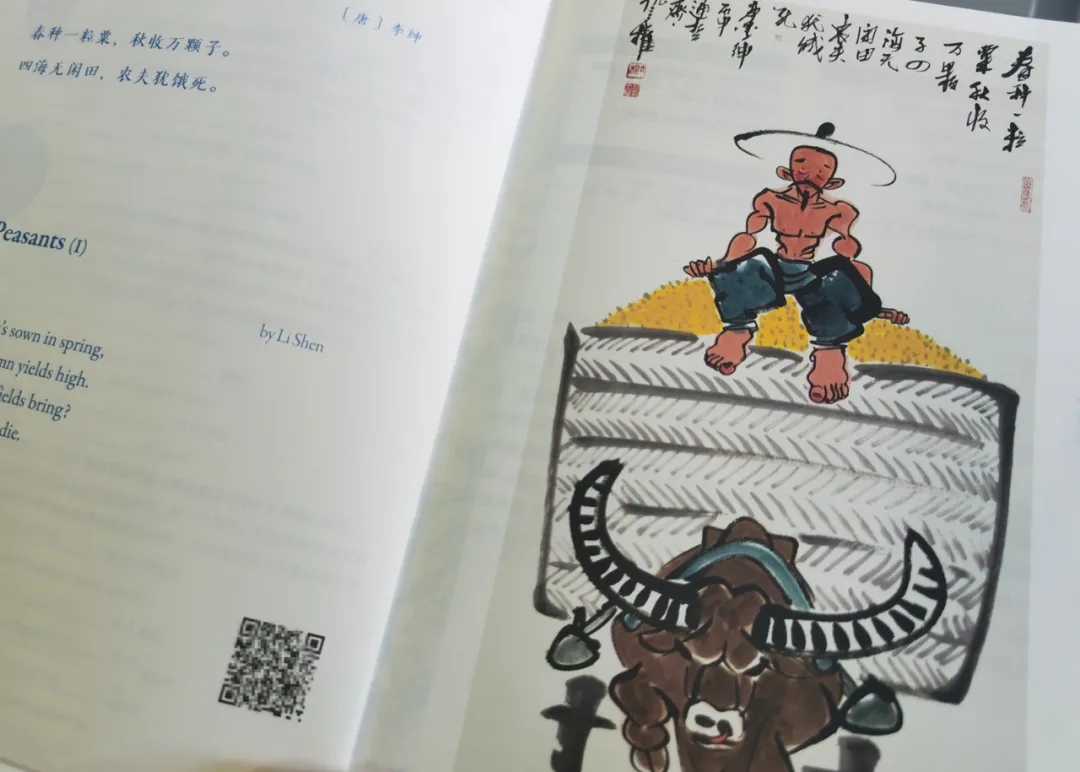 〔唐〕李绅
春种一粒粟，秋收万颗子。
四海无闲田，农夫犹饿死。
Peasants (I)
by Li Shen
's sown in spring,
mn yields high.
ields bring?
die.
春种一粒
粟秋收
万颗
子四
海无
闲田
农夫
犹饿
死
唐李绅